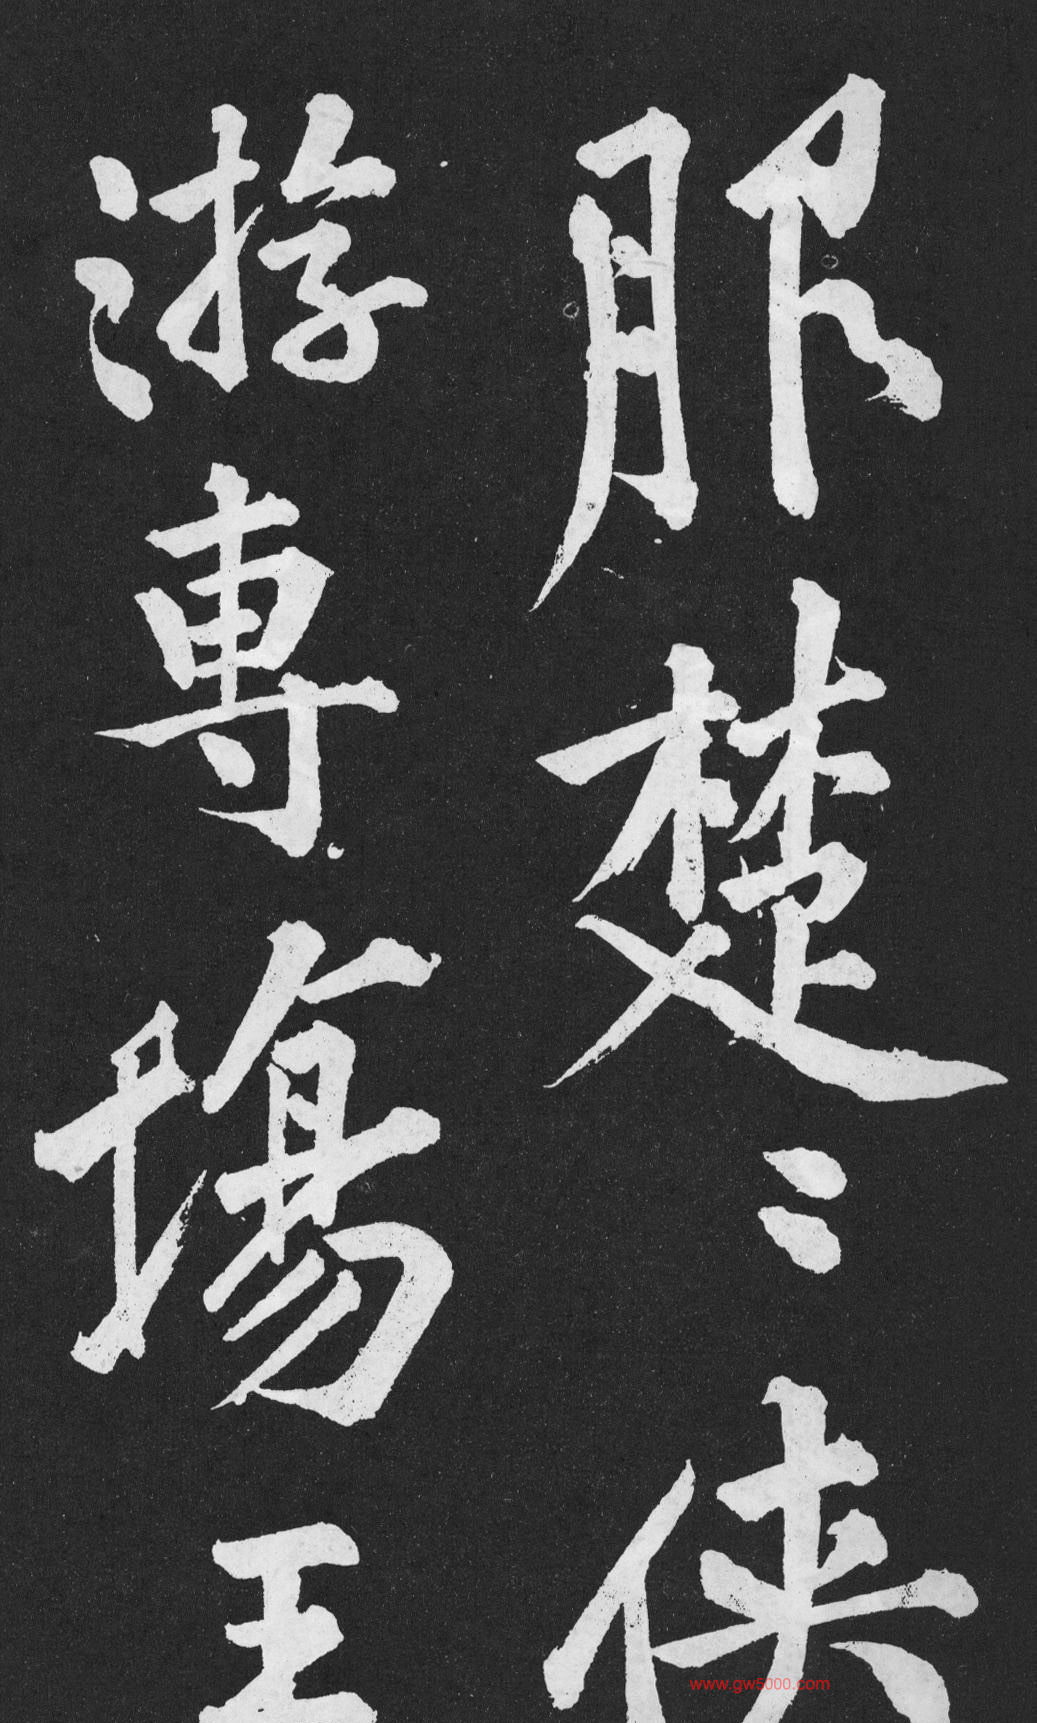 服楚〻俠
游專場王
www.gw5000.com